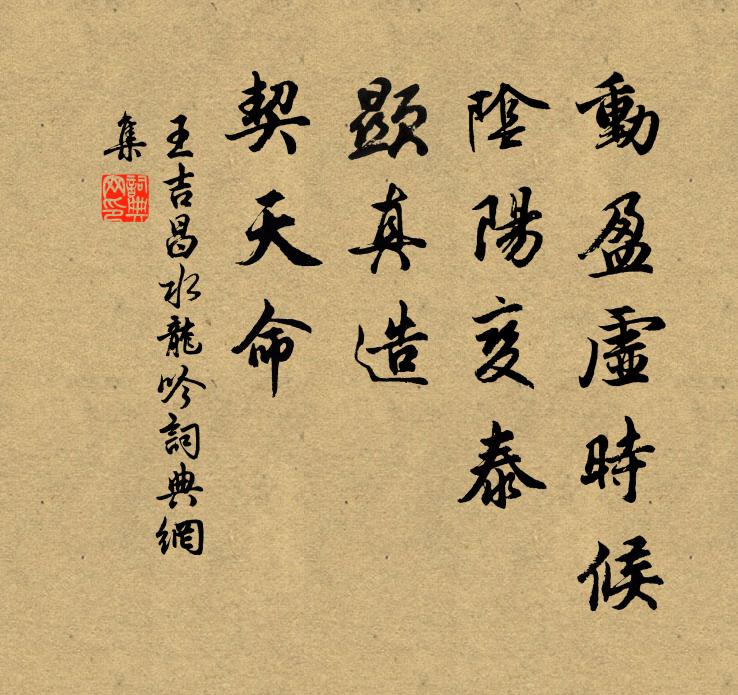 動盈虛時候
陰陽交泰
顯真造
契天命
王吉昌水龍吟詞典網
集
詞典
网印